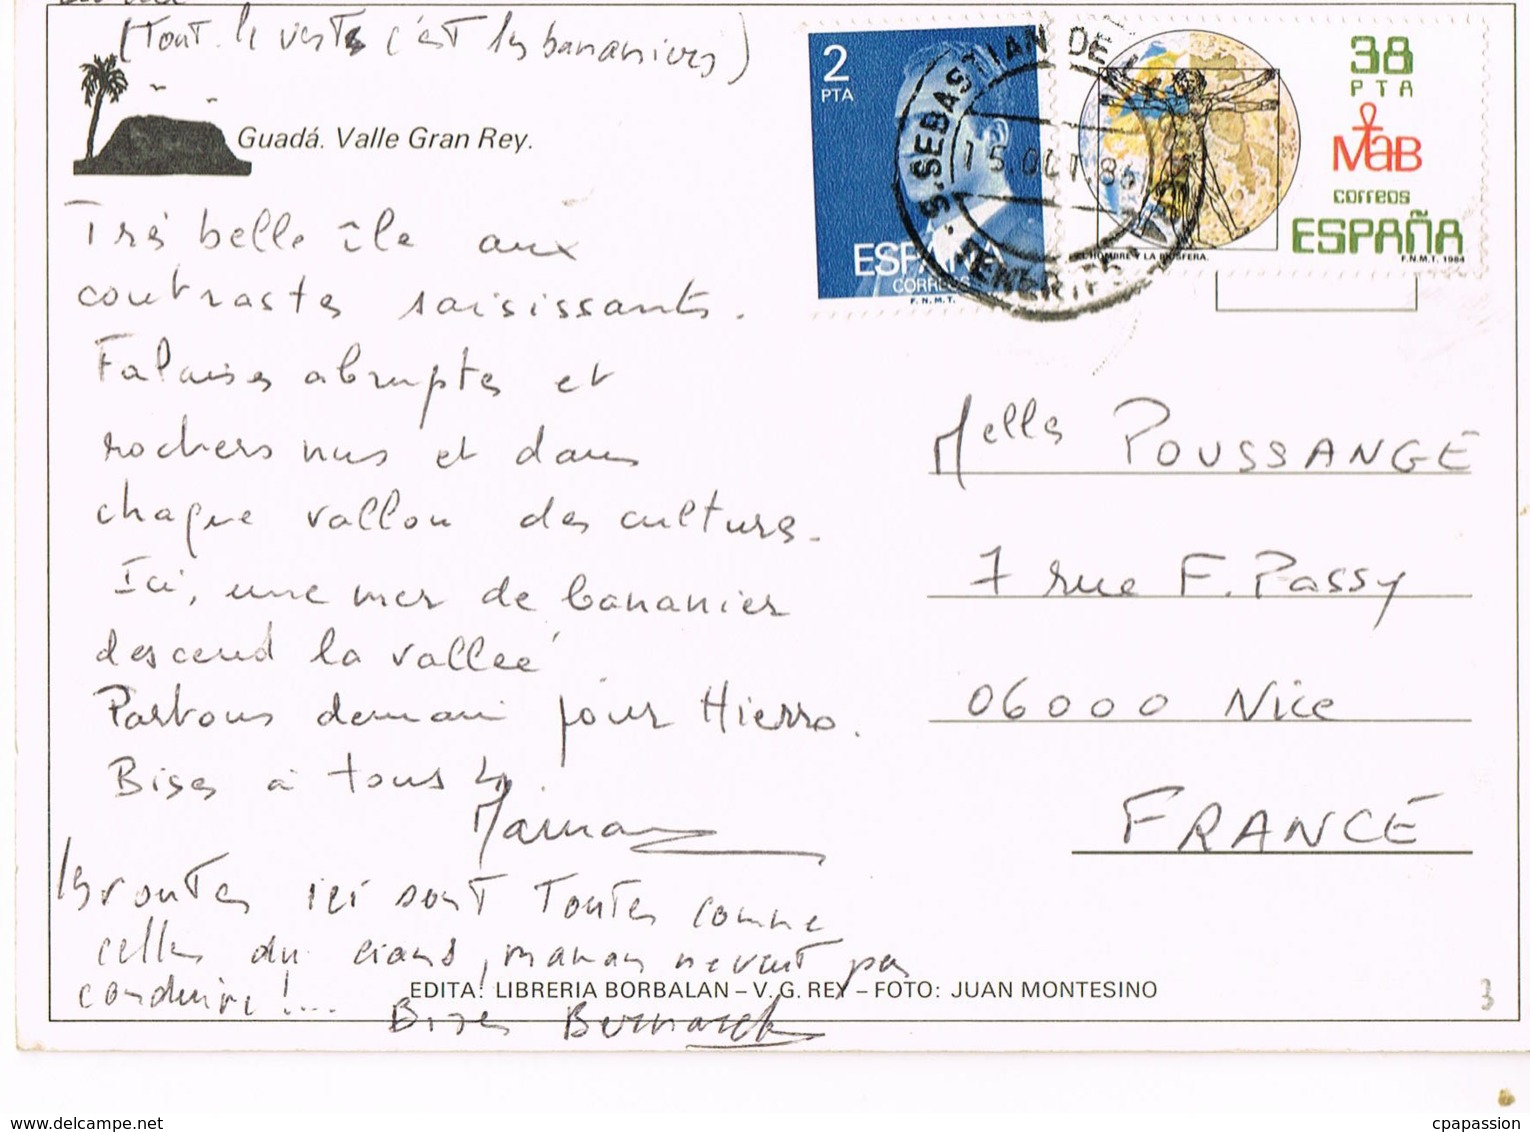 (Tout le vert c'est les bananiers)
Guadá. Valle Gran Rey.
Très belle île aux
contrastes saisissants.
Falaises abruptes et
rochers nus et dans
chaque vallon des cultures.
Ici, une mer de bananier
descend la vallée
Partons demain pour Hierro.
Bises à tous 4.
Maman
les routes ici sont toutes comme
celles du cians, maman ne veut pas
conduire !...
Bises Bernard
EDITA: LIBRERIA BORBALAN – V. G. REY – FOTO: JUAN MONTESINO
2
PTA
ESPAÑA
CORREOS
F. N. M. T.
S. SEBASTIAN DE LA
15. OCT. 86
TENERIFE
38
PTA
MaB
correos
ESPAÑA
EL HOMBRE Y LA BIOSFERA.
F.N.M.T. 1984
Melles POUSSANGE
7 rue F. Passy
06000 Nice
FRANCE
3
www.delcampe.net
cpapassion